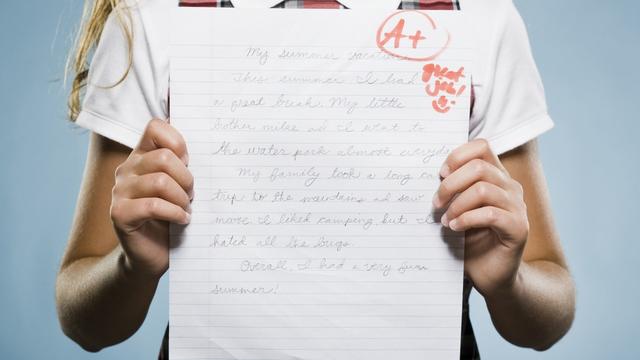 My summer vacation
A+
This summer I had
great
job!
a great break. My little
bother mike ad I went to
the water park almost everyday
My family took a long car
trip to the mountains ad saw
more. I liked camping but I
hated all the bugs.
Overall, I had a very fun
summer!